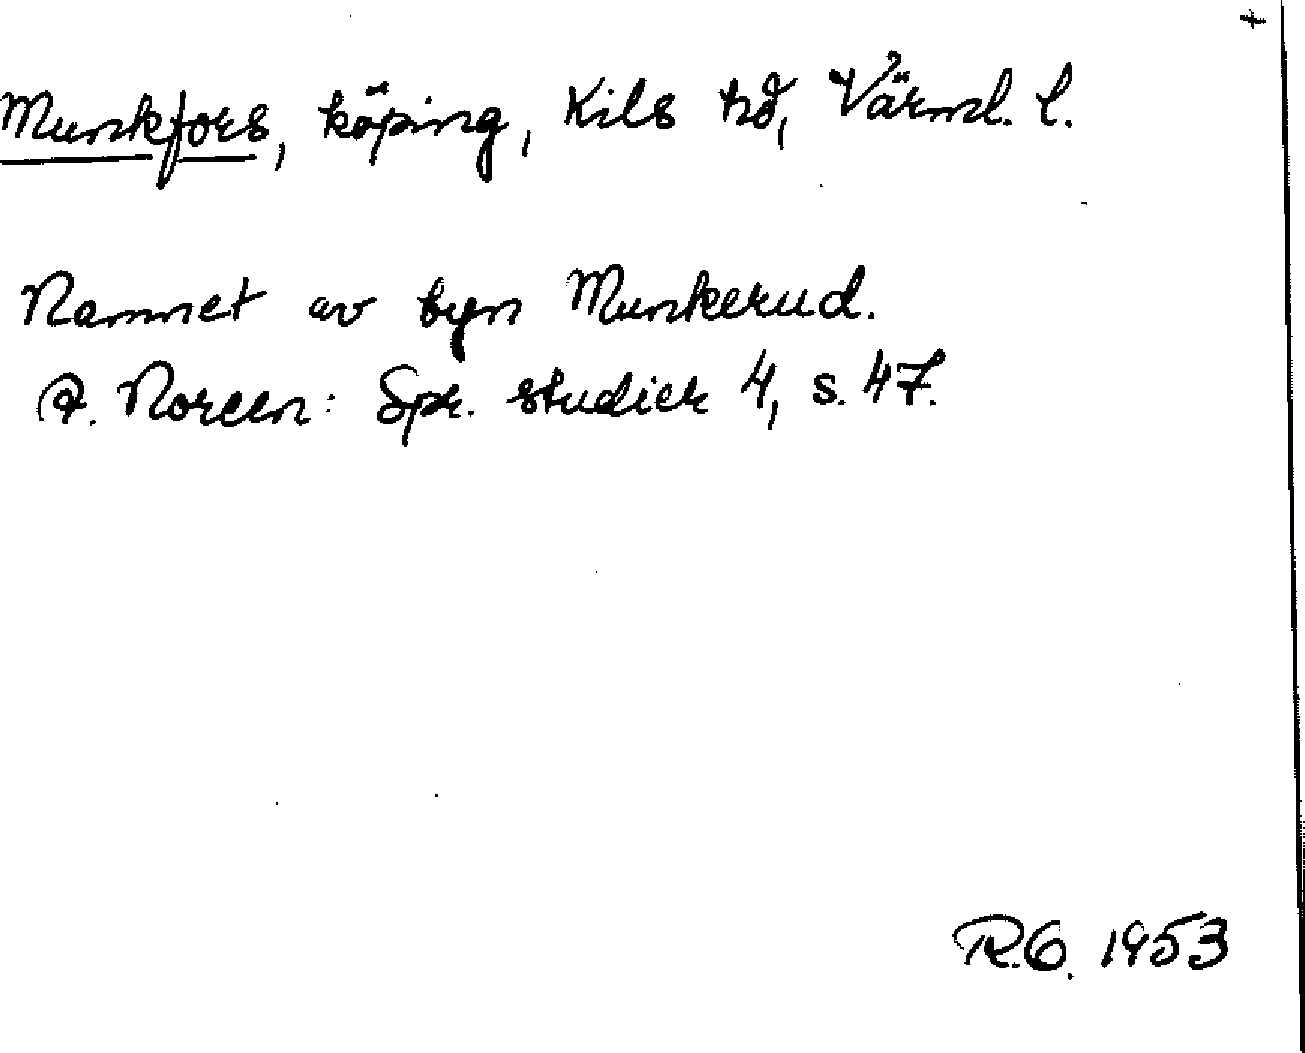 Munkfors, köping, Kils hd, Värml. l.
Namnet av byn Munkerud.
A. Noreen: Spr. studier 4, s. 47.
R.G. 1953